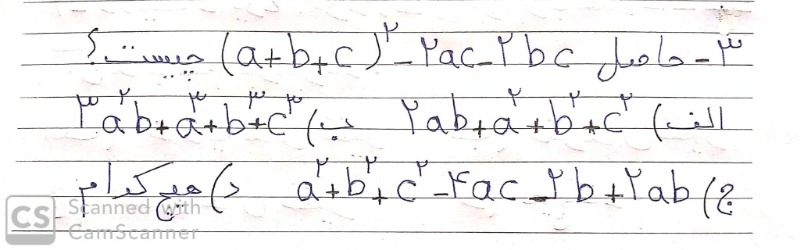 ۳- حاصل (a+b+c)^۲-۲ac-۲bc چیست؟
الف) ۲ab+a^۲+b^۲+c^۲ ب) ۳a^۲b+a^۳+b^۳+c^۳
ج) a^۲+b^۲+c^۲-۴ac-۲b+۲ab د) هیچ کدام
CS Scanned with
CamScanner